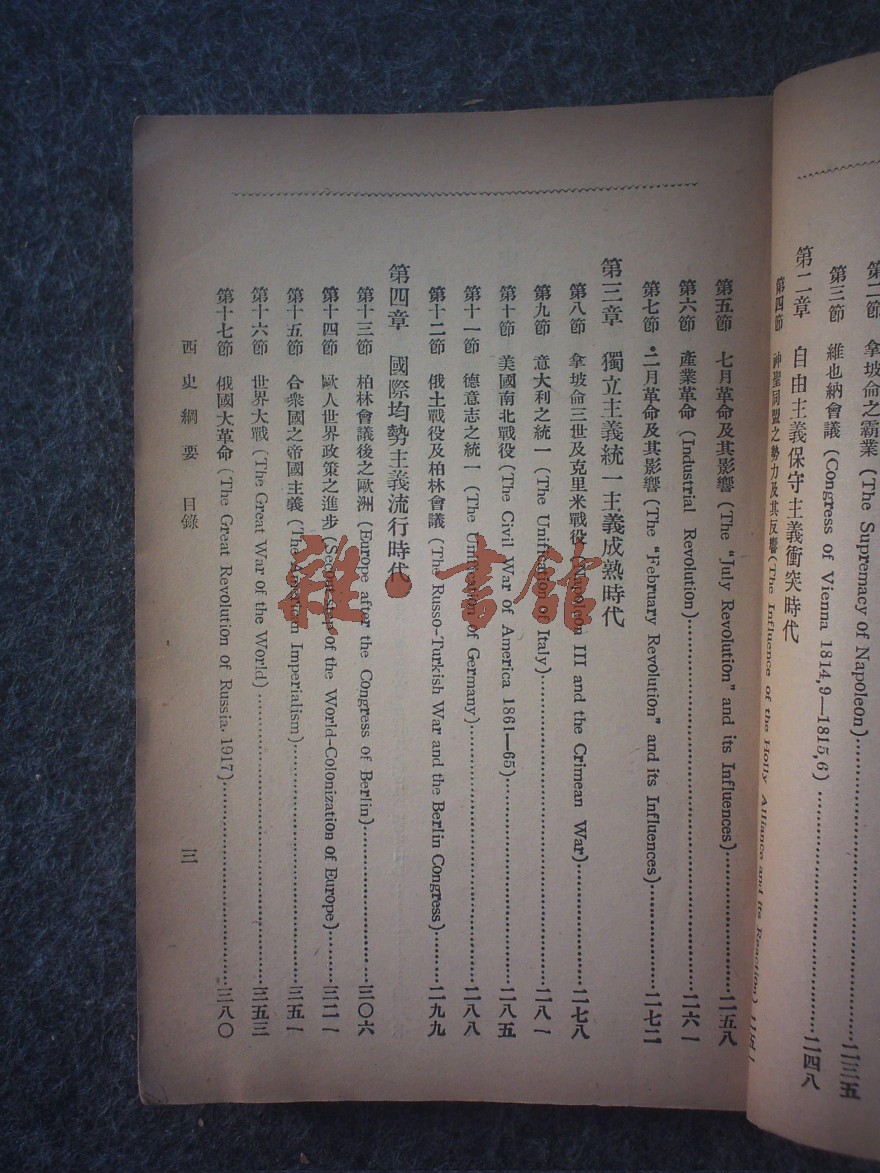 第二節 拿坡侖之霸業 (The Supremacy of Napoleon)……二三五
第三節 維也納會議 (Congress of Vienna 1814,9—1815,6)……二四八
第二章 自由主義保守主義衝突時代
第四節 神聖同盟之勢力及其反響 (The Influence of the Holly Alliance and its Reaction)
第五節 七月革命及其影響 (The "July Revolution" and its Influences)……二五八
第六節 產業革命 (Industrial Revolution)……二六一
第七節 二月革命及其影響 (The "February Revolution" and its Influences)……二七二
第三章 獨立主義統一主義成熟時代
第八節 拿坡侖三世及克里米戰役 (Napoleon III and the Crimean War)……二七八
第九節 意大利之統一 (The Unification of Italy)……二八一
第十節 美國南北戰役 (The Civil War of America 1861—65)……二八五
第十一節 德意志之統一 (The Unification of Germany)……二八八
第十二節 俄土戰役及柏林會議 (The Russo-Turkish War and the Berlin Congress)……二九九
第四章 國際均勢主義流行時代
第十三節 柏林會議後之歐洲 (Europe after the Congress of Berlin)……三〇六
第十四節 歐人世界政策之進步 (Second step of the World-Colonization of Europe)……三二一
第十五節 合衆國之帝國主義 (The American Imperialism)……三五一
第十六節 世界大戰 (The Great War of the World)……三五三
第十七節 俄國大革命 (The Great Revolution of Russia, 1917)……三八〇
西史綱要 目錄 三
雜·書館